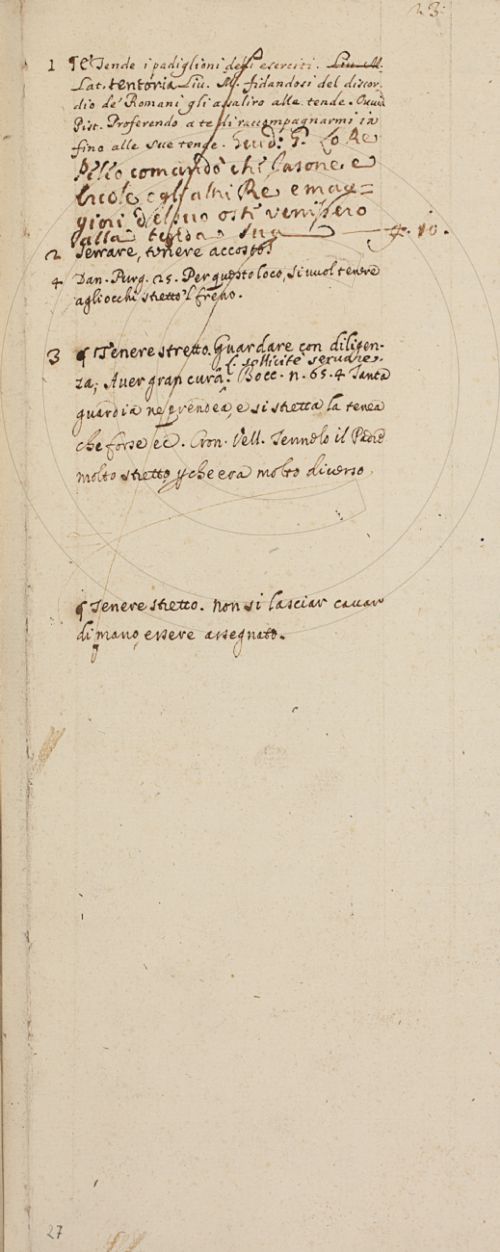 23.
1 Tende i padiglioni degli eserciti. Liu. M.
Lat. tentoria Liu. M. fidandosi del discor-
dio de' Romani gli assaliro alle tende. Ouid.
Pist. Proferendo a te di raccompagnarmi in
fino alle sue tende. Guid. G. Lo Re
Pello comandò che Iasone, e
Ercole, e gli altri Re, e mag=
giori del suo oste venissero
alla tenda sua 4. 10.
2 Serrare, tenere accosto.
4 Dan. Purg. 25. Per questo loco, si vuol tenere
agli occhi stretto 'l freno.
3 ¶ Tenere stretto. Guardare con diligen-
L. sollicitè seruare.
za; Auer gran cura. Bocc. n. 65. 4 Tanta
guardia ne prendea, e sì stretta la tenea
che forse ec. Cron. Vell. Tennelo il Padre
molto stretto, perchè era molto diverso.
¶ Tenere stretto. Non si lasciar cavar
di mano, essere assegnato.
27